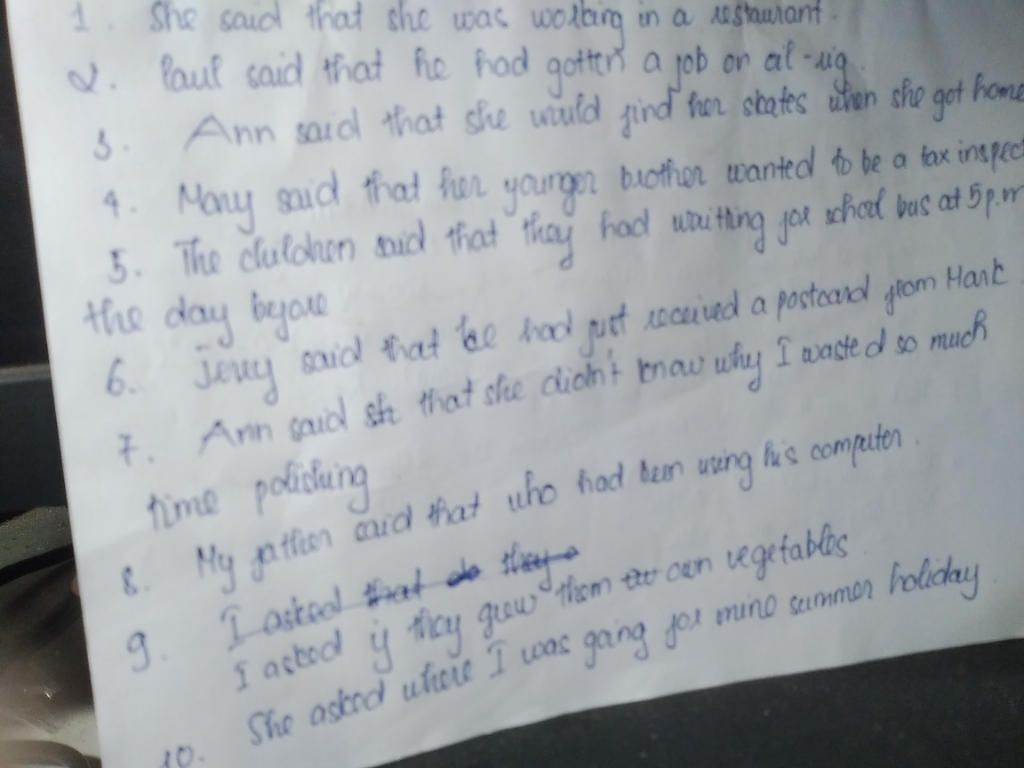 1. She said that she was working in a restaurant.
2. Paul said that he had gotten a job on oil-rig.
3. Ann said that she would find her skates when she got home
4. Mary said that her younger brother wanted to be a tax inspect
5. The children said that they had waitting for school bus at 5p.m
the day before
6. Jerry said that he had just received a postcard from Hank
7. Ann said sh that she didn't know why I wasted so much
time polishing
8. My father said that who had been using his computer.
9. I asked that do they
I asked if they grew them own vegetables
10. She asked where I was going for mine summer holiday.